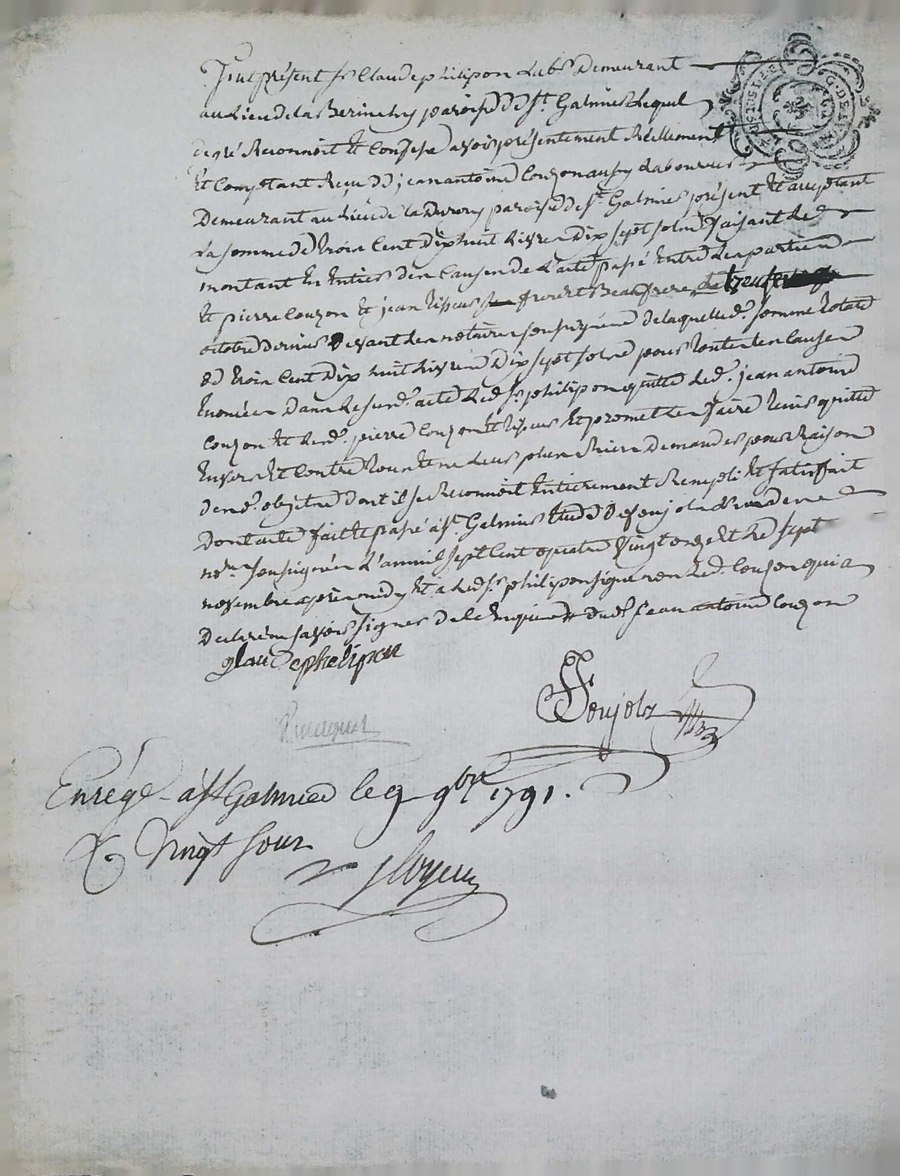 fut présent sr Claude philipon labr Demeurant
au Lieu de la paroisse de St. Galmier Lequel
de gré Reconnoit Et Confesse avoir présentement Réellement
Et Comptant Reçu de jean antoine Couzon aussy Laboureur
Demeurant au Lieu de la paroisse de St. Galmier présent Et acceptant
La somme de trois Cent Dix huit Livres Dix sept sols faisant le
montant En Entier des Causes de L'acte passé Entre les parties
Et pierre Couzon Et jean frere Et Beaufrere
octobre dernier Devant les notaires soussignés de laquelle de. somme totale
de trois Cent Dix huit Livres Dix sept sols pour toutes les Causes
Enoncées Dans Le surd. acte Led. sr. philipon quitte Led. jean antoine
Couzon Et Lesd. pierre Couzon Et Et promet Les faire tenir quitte
Envers Et Contre tous Et ne Leur plus Rien Demander pour Raison
desd. objets Dont il se Reconnoit Entierement Rempli Et satisfait
Dont acte fait Et passé à St. Galmier Etude De Desoujols L'un des
nores. soussignés L'an mil sept Cent quatre vingt onze Et Le sept
novembre après midy Et a Led. sr. philipon signé non Led. Couzon qui a
Declaré ne savoir signer de ce Enquis dud. jean antoine Couzon
glaude philipon
Desoujols nre
Enrégé. à St Galmier le 9 9bre 1791.
R vingt sous